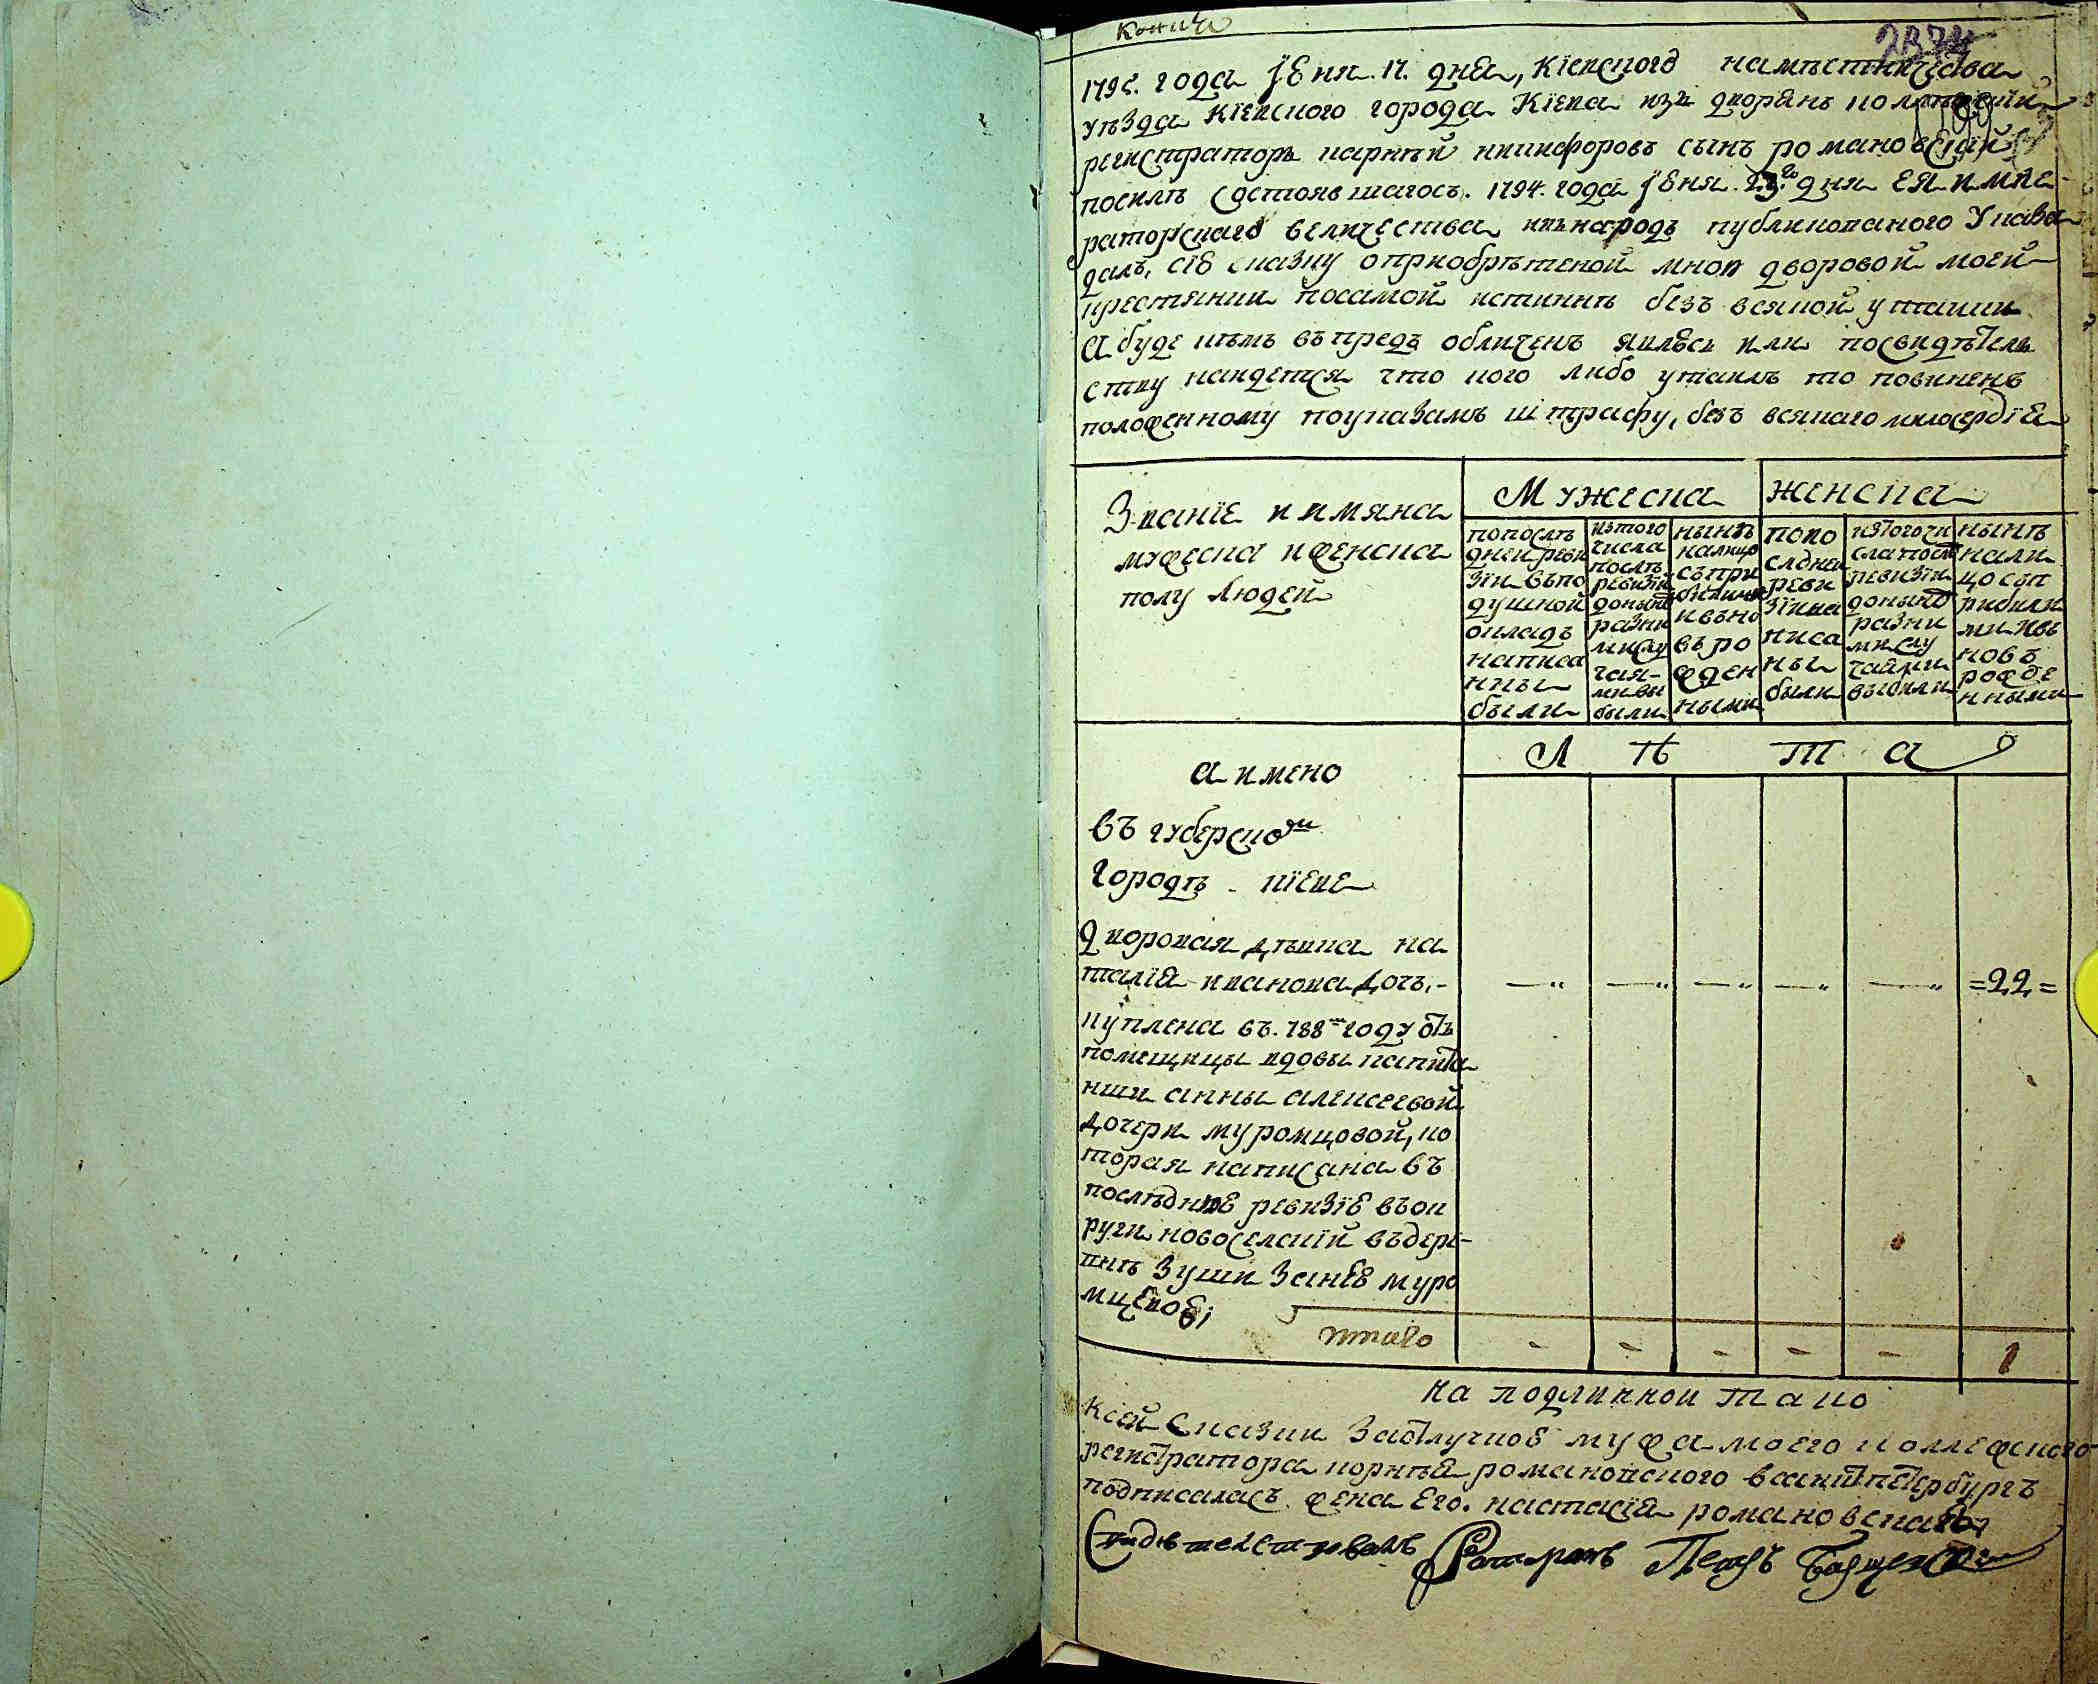 Копія
1795. года Іюня 17. дня, Кіевского намѣстничества
уѣзда Кіевского города Кіева изъ дворянъ
регистраторъ карнѣй никифоровъ сынъ романовский
посилѣ состоявшагося. 1794. года Іюня 23.го дня ЕЯ импе
раторскаго величества въ народъ публикованого Указа
далъ, сію сказку оприобрѣтеной мною дворовой моей
крестянки посамой истиннѣ безъ всякой утайки
А буде кѣмъ въпредъ обличенъ явлюсь или посвидѣтель
ству найдется что кого либо утаилъ то повиненъ
положенному поуказамъ штрафу, безъ всякаго милосердія
Званіе иимяна
мужеска иженска
полу людей
Мужеска
женска
попослѣ
дней реви
зіи въпо
душной
окладъ
написа
нны
были
изтого
числа
послѣ
ревизіи
донынѣ
разны
ми слу
чая
ми вы
были
нынѣ
налицо
съпри
былыми
ивъно
въ ро
жден
ными
попо
слдней
реви
зіи на
писа
ны
были
изтого чи
сла послѣ
ревизіи
донынѣ
разни
ми слу
чайми
выбыли
нынѣ
нали
цо съп
рибыли
ми ивъ
новъ
рожде
нными
Л ѣ т а
а имено
въ губерско
городѣ кіеве
Дворовая дѣвка на
талія иванова дочь,- —„ —„ —„ —„ —„ =22=
куплена въ. 788м году отъ
помещицы вдовы капита
нши анны алексеевой
дочери муромцовой, ко
торая написана въ
последнюю ревизію въок
руги новоселский въдере-
внѣ Зуши Занею муро
мцевою;
итаго - - - - - 1
на подлинной тако
Ксей сказки Заотлучкою мужа моего колежского
регистратора корнѣя романовского всанктпетербургъ
подписалась жена Его. настасія романовская
Свидѣтелствовалъ Ротмистръ Петръ